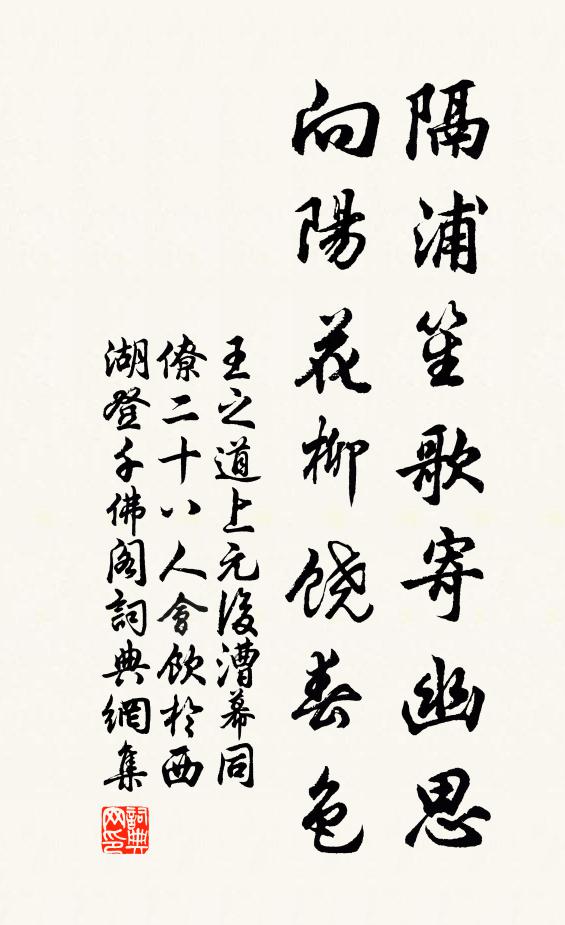 隔浦笙歌寄幽思
向陽花柳饒春色
王之道上元後漕幕同
僚二十八人會飲於西
湖登千佛閣詞典網集
詞典网印